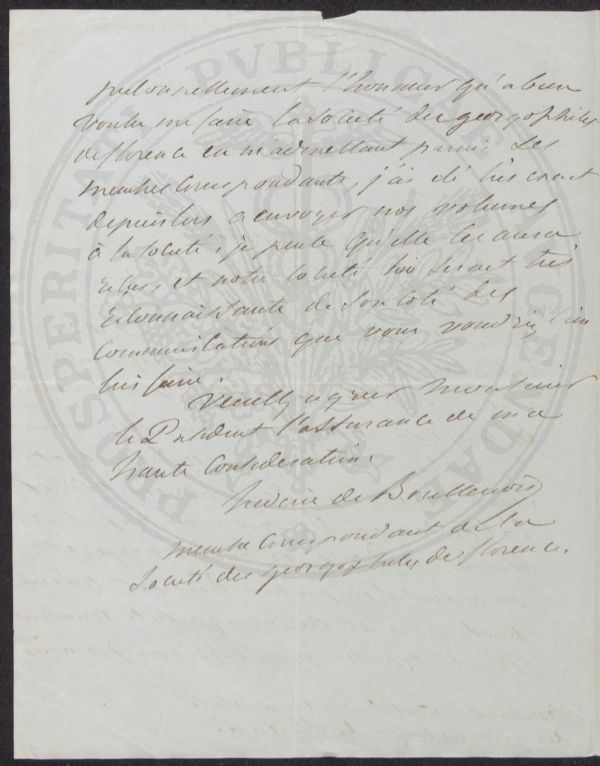 personnellement l'honneur qu'a bien
voulu me faire la société des georgophiles
de florence en m'admettant parmi ses
membres correspondants, j'ai été très exact
depuis lors a envoyer nos volumes
à la société; je pense qu'elle les aura
reçus et notre société lui serait très
reconnaissante de son coté des
communications que vous voudriez bien
lui faire.
Veuillez agréer Monsieur
le Président l'assurance de ma
haute considération.
de Boullenois
membre correspondant de la
société des georgophiles de florence.
PROSPERITATI PVBLICAE AVGENDAE